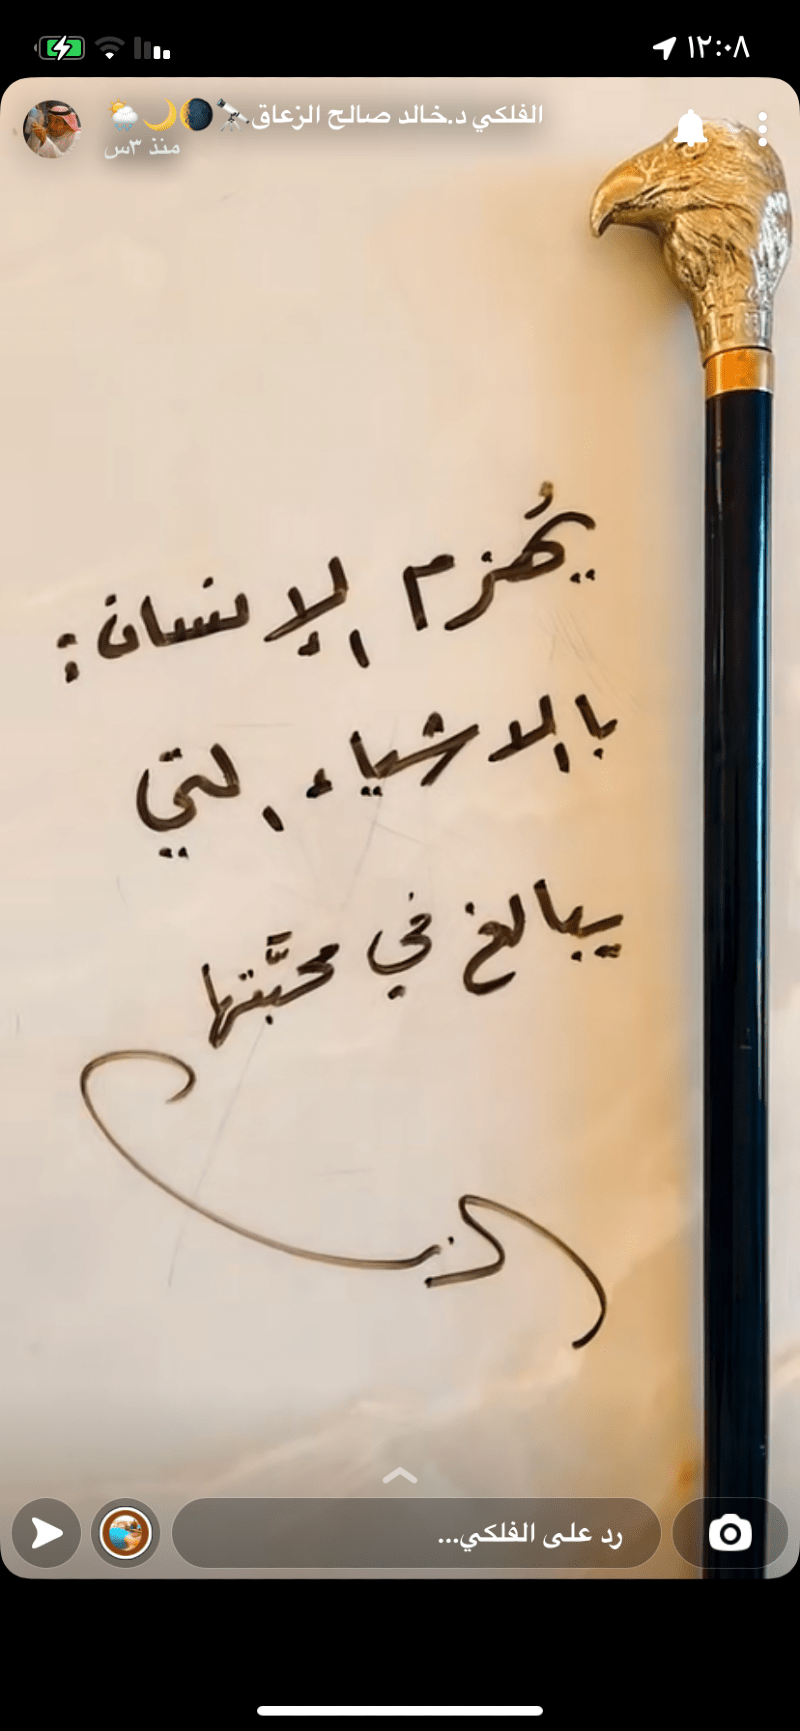 ١٢:٠٨
الفلكي د.خالد صالح الزعاق🔭🌘🌙🌦
منذ ٣س
يُهزم الإنسان:
بالاشياء التي
يبالغ في محبَّتها
رد على الفلكي...